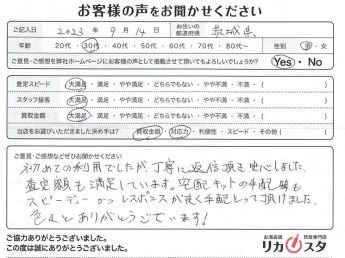 お客様の声をお聞かせください
ご記入日 2023年 9月 14日 お住いの都道府県 茨城県
年齢 20代・30代・40代・50代・60代・70代・80代～ 性別 男・女
ご意見・ご感想を弊社ホームページにお客様の声として掲載させて頂いてもよろしいでしょうか? Yes・No
査定スピード 大満足・満足・やや満足・どちらでもない・やや不満・不満・( )
スタッフ接客 大満足・満足・やや満足・どちらでもない・やや不満・不満・( )
買取金額 大満足・満足・やや満足・どちらでもない・やや不満・不満・( )
当店をお選びいただきました決め手は? 買取金額・対応力・利便性・スピード・その他( )
ご意見・ご感想などぜひお聞かせください
初めての利用でしたが、丁寧に返信頂き安心しました。
査定額も満足しています。宅配キットの手配等も
スピーディーかつレスポンスが良く手配とって頂けました。
色々とありがとうございます!
ご協力ありがとうございました。
この度は誠にありがとうございました。
お酒高価買取専門店
リカスタ